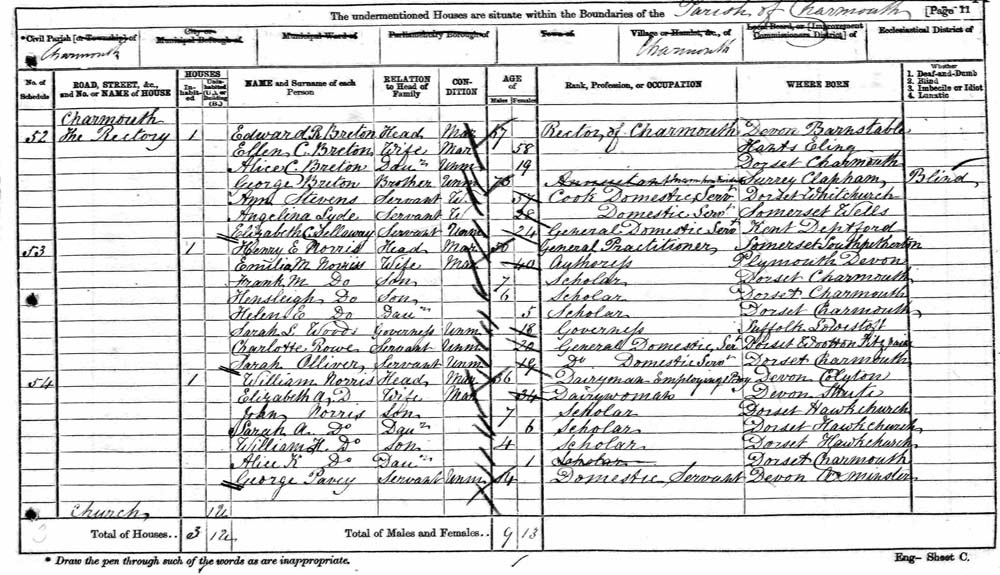 The undermentioned Houses are situate within the Boundaries of the Parish of Charmouth [Page 11
*Civil Parish [or Township] of Charmouth
City or Municipal Borough of
Municipal Ward of
Parliamentary Borough of
Town of
Village or Hamlet, &c., of Charmouth
Local Board, or [Improvement Commissioners District] of
Ecclesiastical District of
No. of Schedule
ROAD, STREET, &c., and No. or NAME of HOUSE
HOUSES
Inhabited
Uninhabited (U.), or Building (B.)
NAME and Surname of each Person
RELATION to Head of Family
CONDITION
AGE of
Males
Females
Rank, Profession, or OCCUPATION
WHERE BORN
Whether
1. Deaf-and-Dumb
2. Blind
3. Imbecile or Idiot
4. Lunatic
Charmouth
52 The Rectory 1 Edward R Breton Head Mar 57 Rector of Charmouth Devon Barnstable
Ellen C. Breton Wife Mar 58 Hants Eling
Alice C. Breton Daur Unm 19 Dorset Charmouth
George Breton Brother Unm Surrey Clapham Blind
Ann Stevens Servant W. 57 Cook Domestic Servt Dorset Whitchurch
Angelina Lyde Servant W 28 Domestic Servt Somerset Wells
Elizabeth C. Sellaway Servant Unm 24 General Domestic Servt Kent Deptford
53 1 Henry E Norris Head Mar General Practitioner Somerset Southpetherton
Emilia M Norris Wife Mar 40 Authoress Plymouth Devon
Frank M Do Son 7 Scholar Dorset Charmouth
Hensleigh Do Son 6 Scholar Dorset Charmouth
Helen E Do Daur 5 Scholar Dorset Charmouth
Sarah L Woods Governess Unm 18 Governess Suffolk Lowestoft
Charlotte Rowe Servant Unm General Domestic Servt Dorset Wootton Fitzpaine
Sarah Olliver Servant Unm 19 Do Domestic Servt Dorset Charmouth
54 1 William Norris Head Mar 36 Dairyman Employing 1 Boy Devon Colyton
Elizabeth A. D Wife Mar 34 Dairywoman Devon Shute
John Norris Son 7 Scholar Dorset Hawkchurch
Sarah A. Do Daur 6 Scholar Dorset Hawkchurch
William H. Do Son 4 Scholar Dorset Hawkchurch
Alice K Do Daur 1 Scholar Dorset Charmouth
George Pavey Servant Unm 64 Domestic Servant Devon Axminster
Church 1u
Total of Houses 3 1u Total of Males and Females 9 13
* Draw the pen through such of the words as are inappropriate.
Eng— Sheet C.